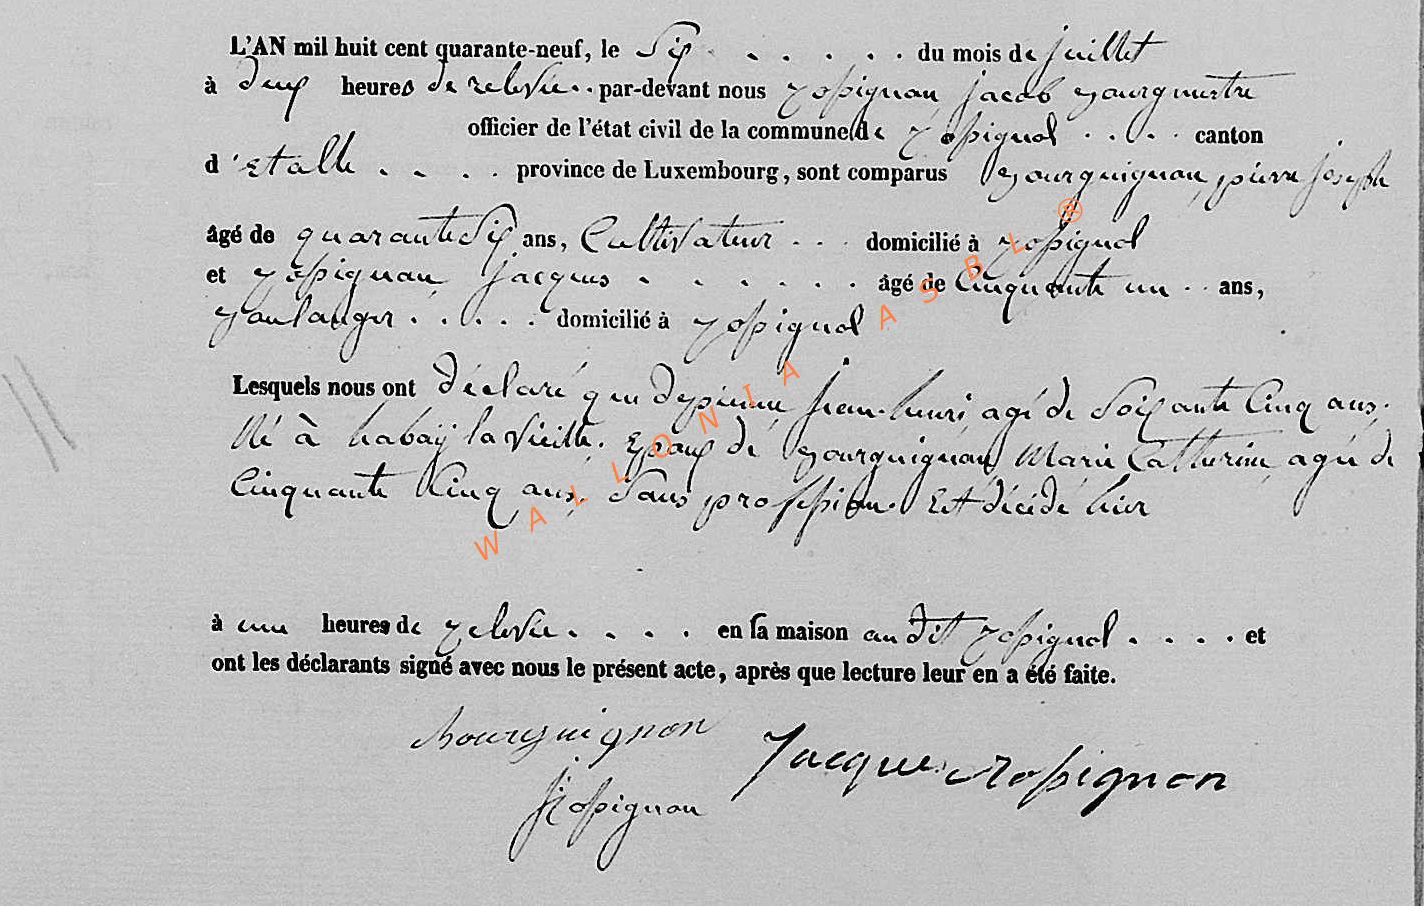 L'AN mil huit cent quarante-neuf, le Six . . . . . du mois de juillet
à deux heures de relevée . . par-devant nous rossignon jacob Bourgmestre
officier de l'état civil de la commune de rossignol . . . . canton
d'Etalle . . . . province de Luxembourg, sont comparus Bourguignon, pierre joseph
âgé de quarante Six ans, Cultivateur . . . domicilié à rossignol
et rossignon jacques . . . . . . âgé de Cinquante un . . ans,
Boulanger . . . . . domicilié à rossignol
Lesquels nous ont déclaré que Depienne jean-henri agé de Soixante Cinq ans.
Né à habaÿ la vieille. Epoux de Bourguignon Marie Catherine, agée de
Cinquante Cinq ans, Sans profession. Est décédé hier
à une heures de relevée . . . . en sa maison audit rossignol . . . . et
ont les déclarants signé avec nous le présent acte, après que lecture leur en a été faite.
Bourguignon
Jacque rossignon
J Rossignon
WALLONIA ASBL ®